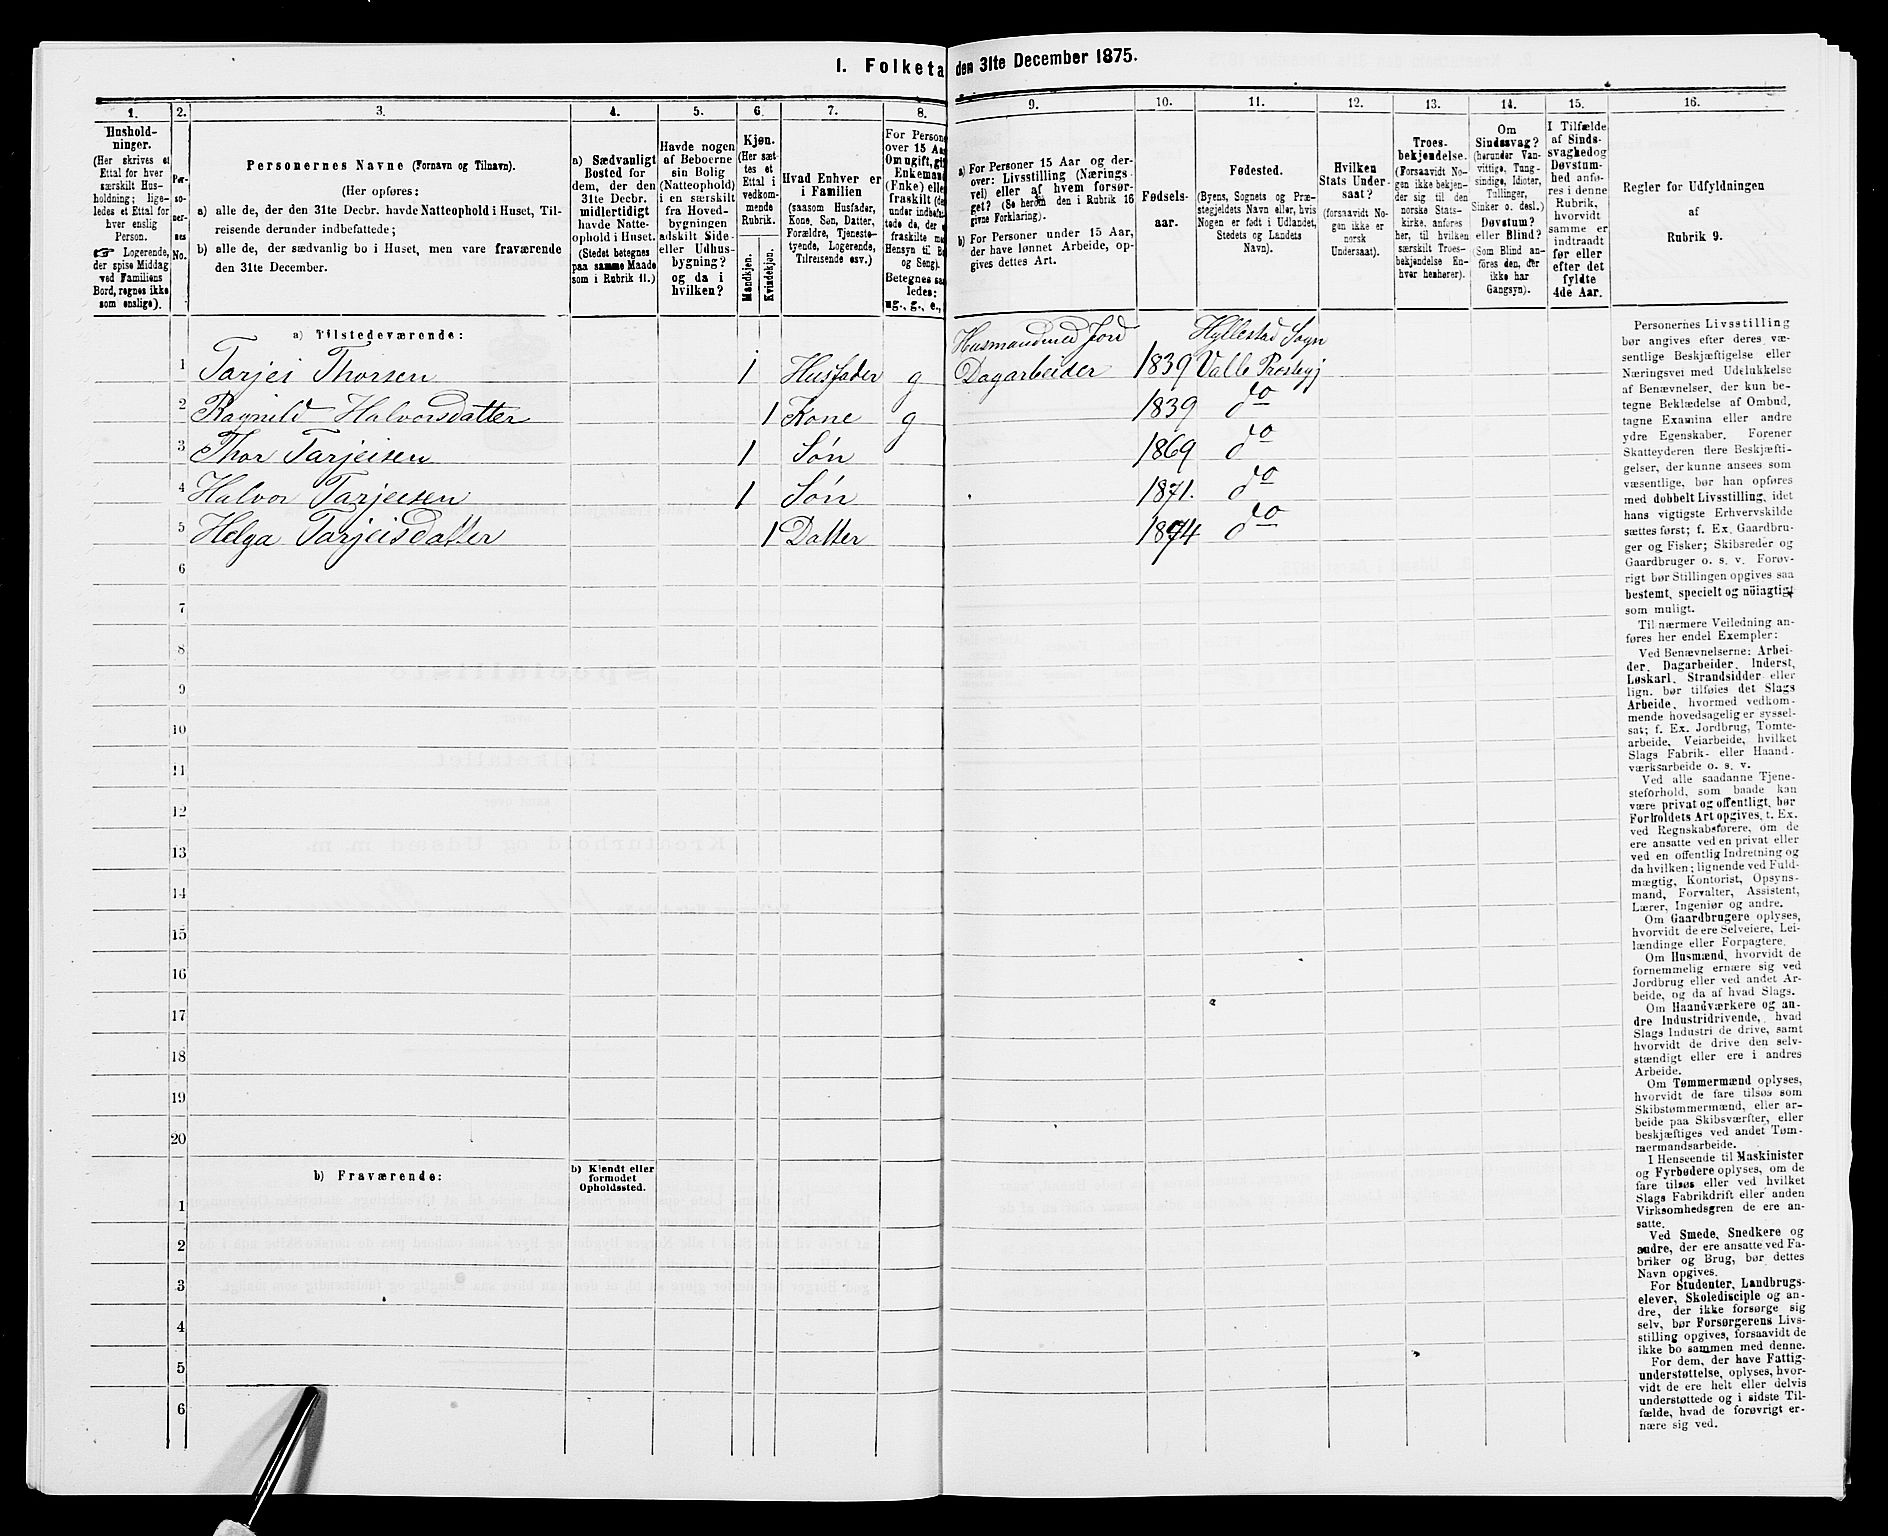 1. Folketa
den 31te December 1875.
1.
2.
3.
4.
5.
6.
7.
8.
9.
10.
11.
12.
13.
14.
15.
16.
Hushold-
ninger.
(Her skrives et
Ettal for hver
særskilt Hus-
holdning; lige-
ledes et Ettal for
hver enslig
Person.
☞ Logerende,
der spise Middag
ved Familiens
Bord, regnes ikke
som enslige).
Per-
so-
ner-
nes
No.
Personernes Navne (Fornavn og Tilnavn).
(Her opføres:
a) alle de, der den 31te Decbr. havde Natteophold i Huset, Til-
reisende derunder indbefattede;
b) alle de, der sædvanlig bo i Huset, men vare fraværende
den 31te December.
a) Sædvanligt
Bosted for
dem, der den
31te Decbr.
midlertidigt
havde Natte-
ophold i Huset.
(Stedet betegnes
paa samme Maade
som i Rubrik 11.)
Havde nogen
af Beboerne
sin Bolig
(Natteophold)
i en særskilt
fra Hoved-
bygningen
adskilt Side-
eller Udhus-
bygning?
og da i
hvilken?
Kjøn.
(Her sæt-
tes et
Ettal i
vedkom-
mende
Rubrik.
Mandkjøn.
Kvindekjøn.
Hvad Enhver er
i Familien
(saasom Husfader,
Kone, Søn, Datter,
Forældre, Tjeneste-
tyende, Logerende,
Tilreisende osv.)
For Persone
over 15 Aa
Om ugift, gif
Enkemand
(Enke) elle
fraskilt (de
under indbefat-
tede de, der e
fraskilte me
Hensyn til Bo
og Seng).
Betegnes saa
ledes:
ug., g., e.,
a) For Personer 15 Aar og der-
over: Livsstilling (Nærings-
vei) eller af hvem forsør-
get? (Se herom den i Rubrik 16
givne Forklaring).
b) For Personer under 15 Aar,
der have lønnet Arbeide, op-
gives dettes Art.
Fødsels-
aar.
Fødested.
(Byens, Sognets og Præ-
stegjeldets Navn eller, hvis
Nogen er født i Udlandet,
Stedets og Landets
Navn).
Hvilken
Stats Under-
saat?
(forsaavidt No-
gen ikke er
norsk
Undersaat).
Troes-
bekjendelse.
(Forsaavidt No-
gen ikke bekjen-
der sig til den
norske Stats-
kirke, anføres
her, til hvilken
særskilt Troes-
bekjendelse En-
hver henhører).
Om
Sindssvag?
(herunder Van-
vittige, Tung-
sindige, Idioter,
Tullinger,
Sinker o. desl.)
Døvstum?
eller Blind?
(Som Blind an-
føres den, der
ikke har
Gangsyn).
I Tilfælde
af Sinds-
svaghed og
Døvstum-
hed anfø-
res i denne
Rubrik,
hvorvidt
samme er
indtraadt
før eller
efter det
fyldte
4de Aar.
Regler for Udfyldningen
af
Rubrik 9.
a) Tilstedeværende:
Husmand med Jord Hyllestad Sogn
1 Tarjei Thorsen 1 Husfader g Dagarbeider 1839 Valle Prestegj
2 Ragnild Halvorsdatter 1 Kone g 1839 do
3 Thor Tarjeisen 1 Søn 1869 do
4 Halvor Tarjeisen 1 Søn 1871. do
5 Helga Tarjeisdatter 1 Datter 1874 do
6
7
8
9
10
11
12
13
14
15
16
17
18
19
20
b) Fraværende:
b) Kjendt eller
formodet
Opholdssted.
1
2
3
4
5
6
Personernes Livsstilling
bør angives efter deres væ-
sentlige Beskjæftigelse eller
Næringsvei med Udelukkelse
af Benævnelser, der kun be-
tegne Beklædelse af Ombud,
tagne Examina eller andre
ydre Egenskaber. Forener
Skatteyderen flere Beskjæfti-
gelser, der kunne ansees som
væsentlige, bør han opføres
med dobbelt Livsstilling, idet
hans vigtigste Erhvervskilde
sættes først; f. Ex. Gaardbru-
ger og Fisker; Skibsreder og
Gaardbruger o. s. v. Forøv-
rigt bør Stillingen opgives saa
bestemt, specielt og nöiagtigt
som muligt.
Til nærmere Veiledning an-
føres her endel Exempler:
Ved Benævnelserne: Arbei-
der, Dagarbeider, Inderst,
Løskarl, Strandsidder eller
lign. bør tilføies det Slags
Arbeide, hvormed vedkom-
mende hovedsagelig er syssel-
sat; f. Ex. Jordbrug, Tomte-
arbeide, Veiarbeide, hvilket
Slags Fabrik- eller Haand-
værksarbeide o. s. v.
Ved alle saadanne Tjene-
steforhold, som baade kan
være privat og offentligt, bør
Forholdets Art opgives, t. Ex.
ved Regnskabsførere, om de
ere ansatte ved en privat eller
ved en offentlig Indretning og
da hvilken; lignende ved Fuld-
mægtig, Kontorist, Opsyns-
mand, Forvalter, Assistent,
Lærer, Ingeniør og andre.
Om Gaardbrugere oplyses,
hvorvidt de ere Selveiere, Lei-
lændinge eller Forpagtere.
Om Husmænd, hvorvidt de
fornemmelig ernære sig ved
Jordbrug eller ved andet Ar-
beide, og da af hvad Slags.
Om Haandværkere og an-
dre Industridrivende, hvad
Slags Industri de drive, samt
hvorvidt de drive den selv-
stændigt eller ere i andres
Arbeide.
Om Tømmermænd oplyses,
hvorvidt de fare tilsøs som
Skibstømmermænd, eller ar-
beide paa Skibsværfter, eller
beskjæftiges ved andet Tøm-
mermandsarbeide.
I Henseende til Maskinister
og Fyrbødere oplyses, om de
fare tilsøs eller ved hvilket
Slags Fabrikdrift eller anden
Virksomhedsgren de ere an-
satte.
Ved Smede, Snedkere og
andre, der ere ansatte ved Fa-
briker og Brug, bør dettes
Navn opgives.
For Studenter, Landbrugs-
elever, Skoledisciple og an-
dre, der ikke forsørge sig
selv, bør Forsørgerens Livs-
stilling opgives, forsaavidt de
ikke bo sammen med denne.
For dem, der have Fattig-
understøttelse, oplyses, hvor-
vidt de ere helt eller delvis
understøttede og i sidste Til-
fælde, hvad de forøvrigt er-
nære sig ved.